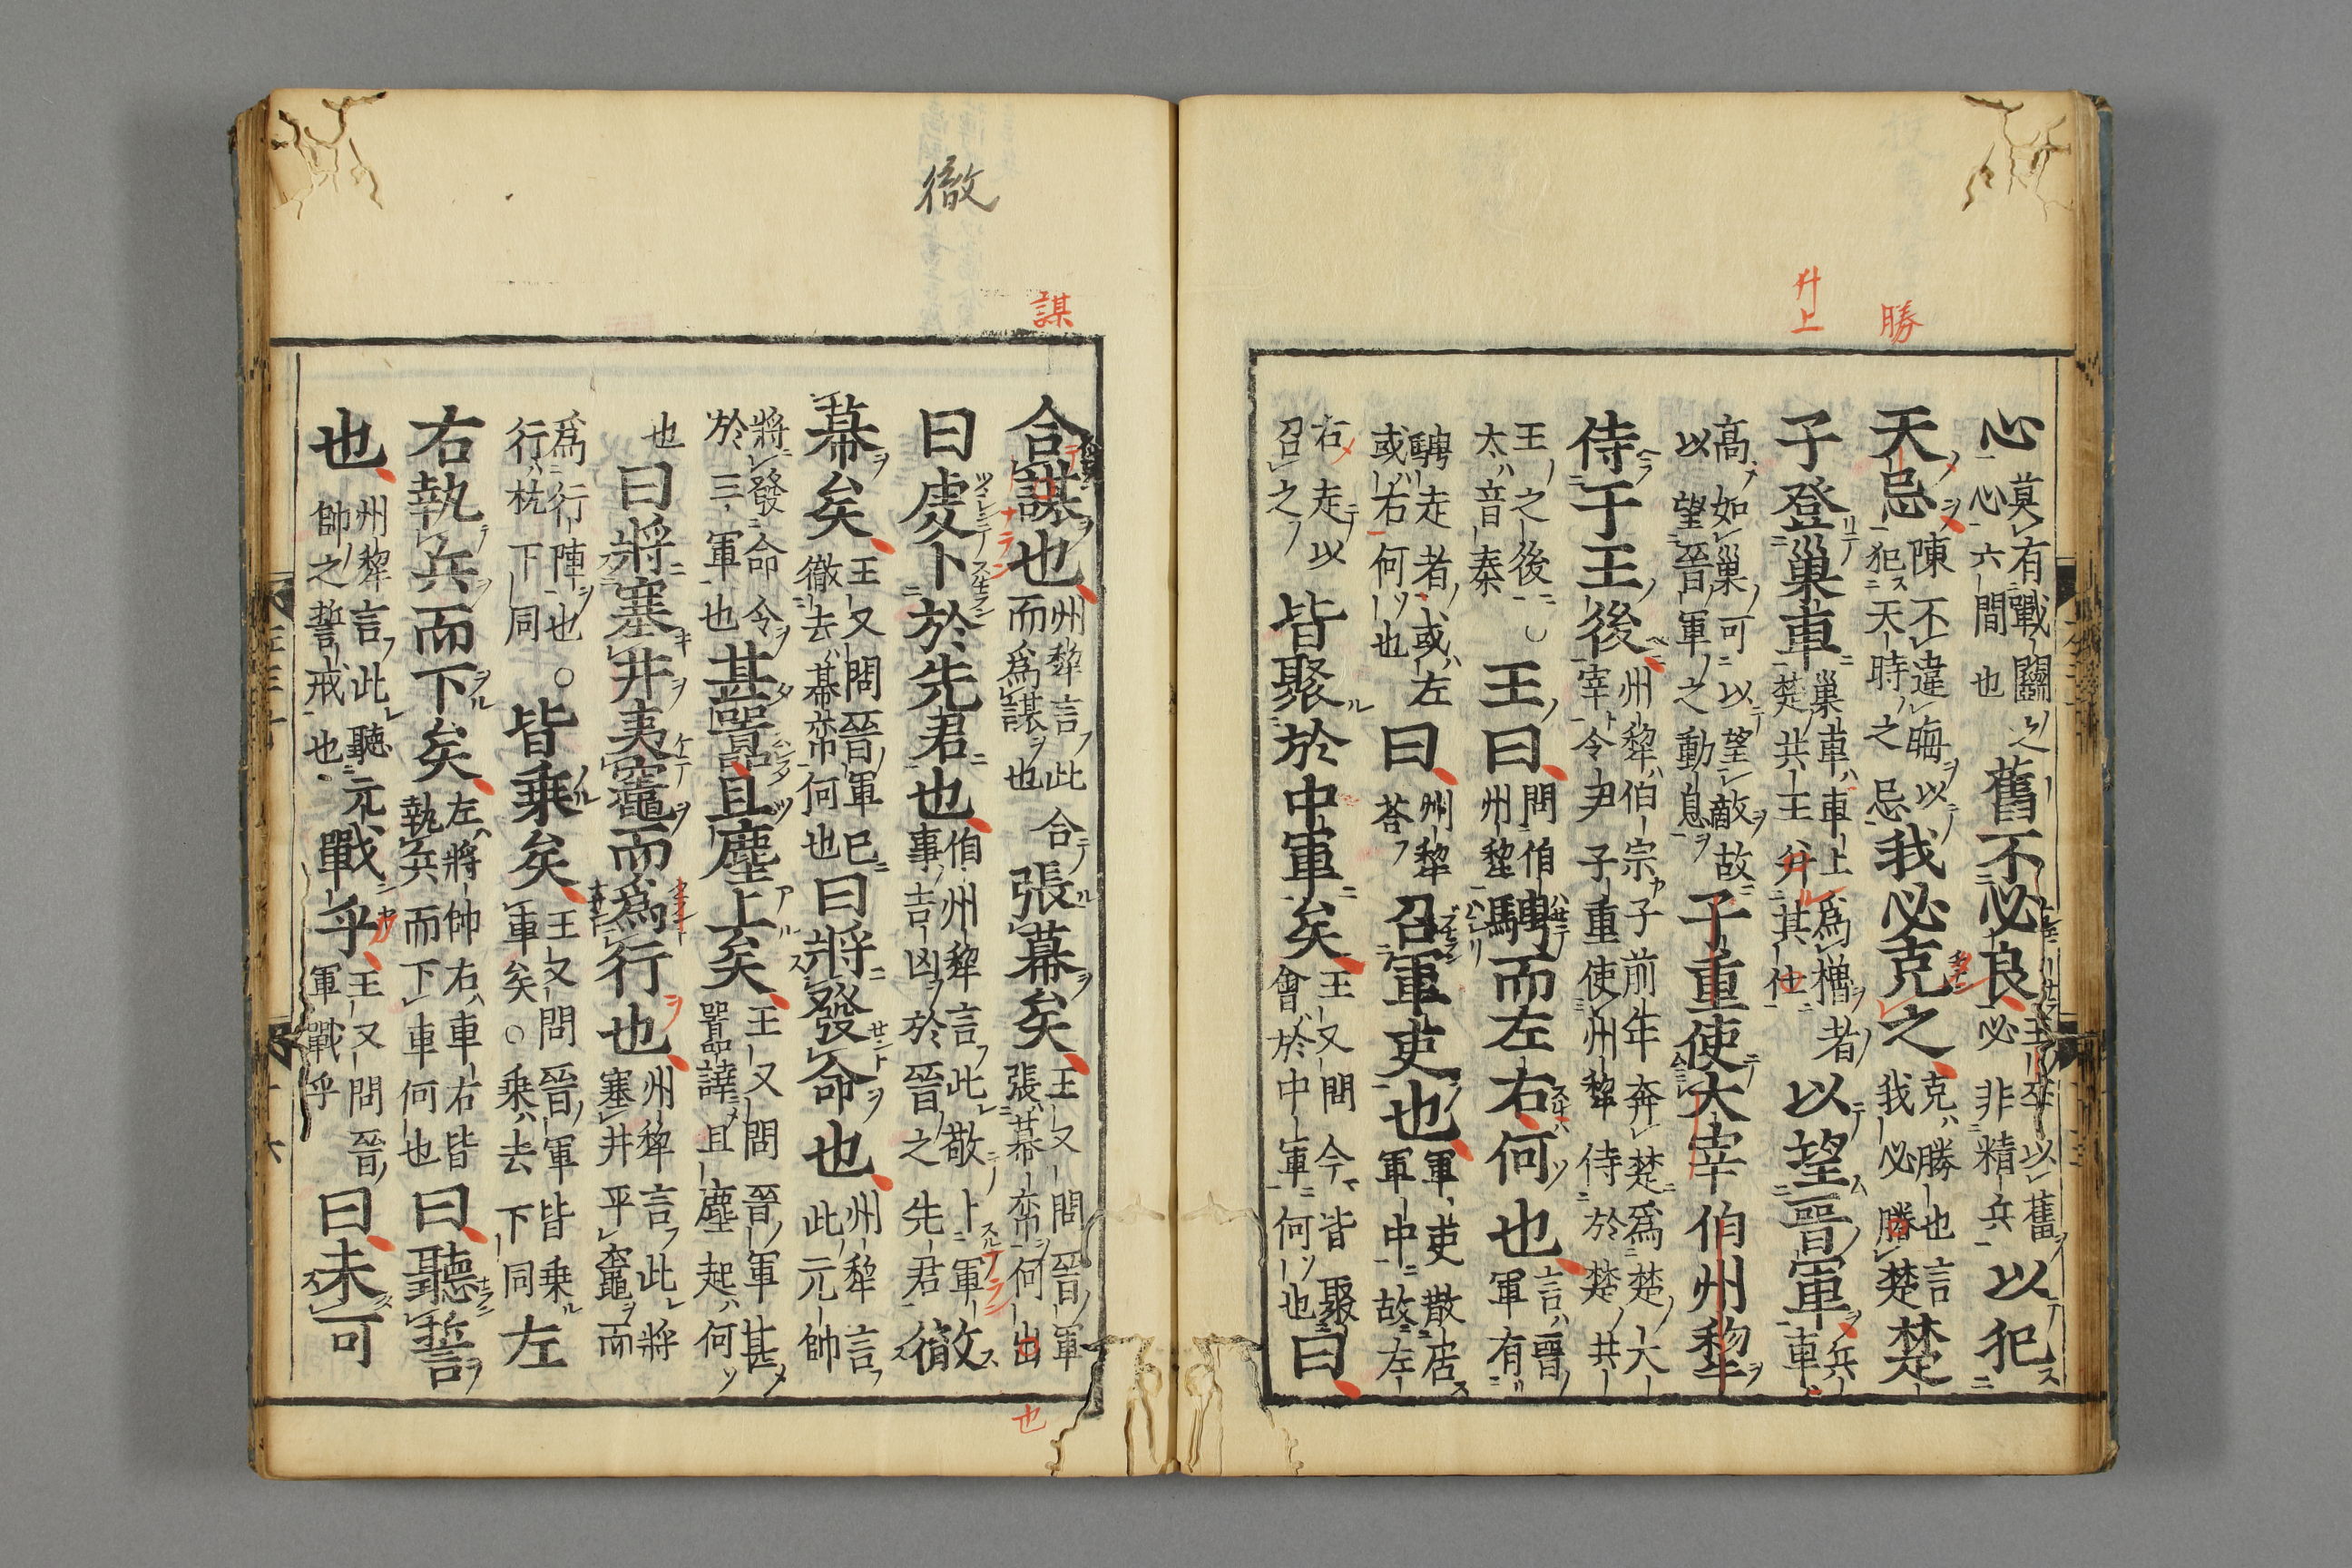 勝
廾上
心莫有戰鬪之心六間也舊不必良王卒以舊必非精兵以犯
天忌陳不違晦以犯天時之忌我必克之克勝也言我必勝楚楚
子登巢車巢車車上爲櫓者楚共王廾其仕以望晉軍兵車
高如巢可以望敵故以望晉軍之動息子重使大宰伯州犂
侍于王後州犂伯宗子前年奔楚爲楚大宰令尹子重使州犂侍於楚共
王之後太音泰○王曰問伯州犂騁而左右何也言晉軍有
騁走者或左或右何也曰州犂荅召軍吏也軍吏散居軍中故左
右走以召之皆聚於中軍矣王又問今皆聚會於中軍何也曰
謀
徹
合謀也州犂言此而爲謀也合張幕矣王又問晉軍張幕帟何出
也
曰虔卜於先君也伯州犂言此敬卜軍事吉凶於晉之先君徹
幕矣王又問晉軍已徹去幕帟何也曰將發命也州犂言此元帥
將發命令於三軍也甚囂且塵上矣王又問晉軍甚囂譁且塵起何
也曰將塞井夷竈而爲行也州犂言此將塞井平竈而
爲行陣也行杭下同○皆乘矣王又問晉軍皆乘軍矣○乘去下同左
右執兵而下矣左將帥右車右皆執兵而下車何也曰聽誓
也州犂言此聽元帥之誓戒也戰乎王又問晉軍戰乎曰未可